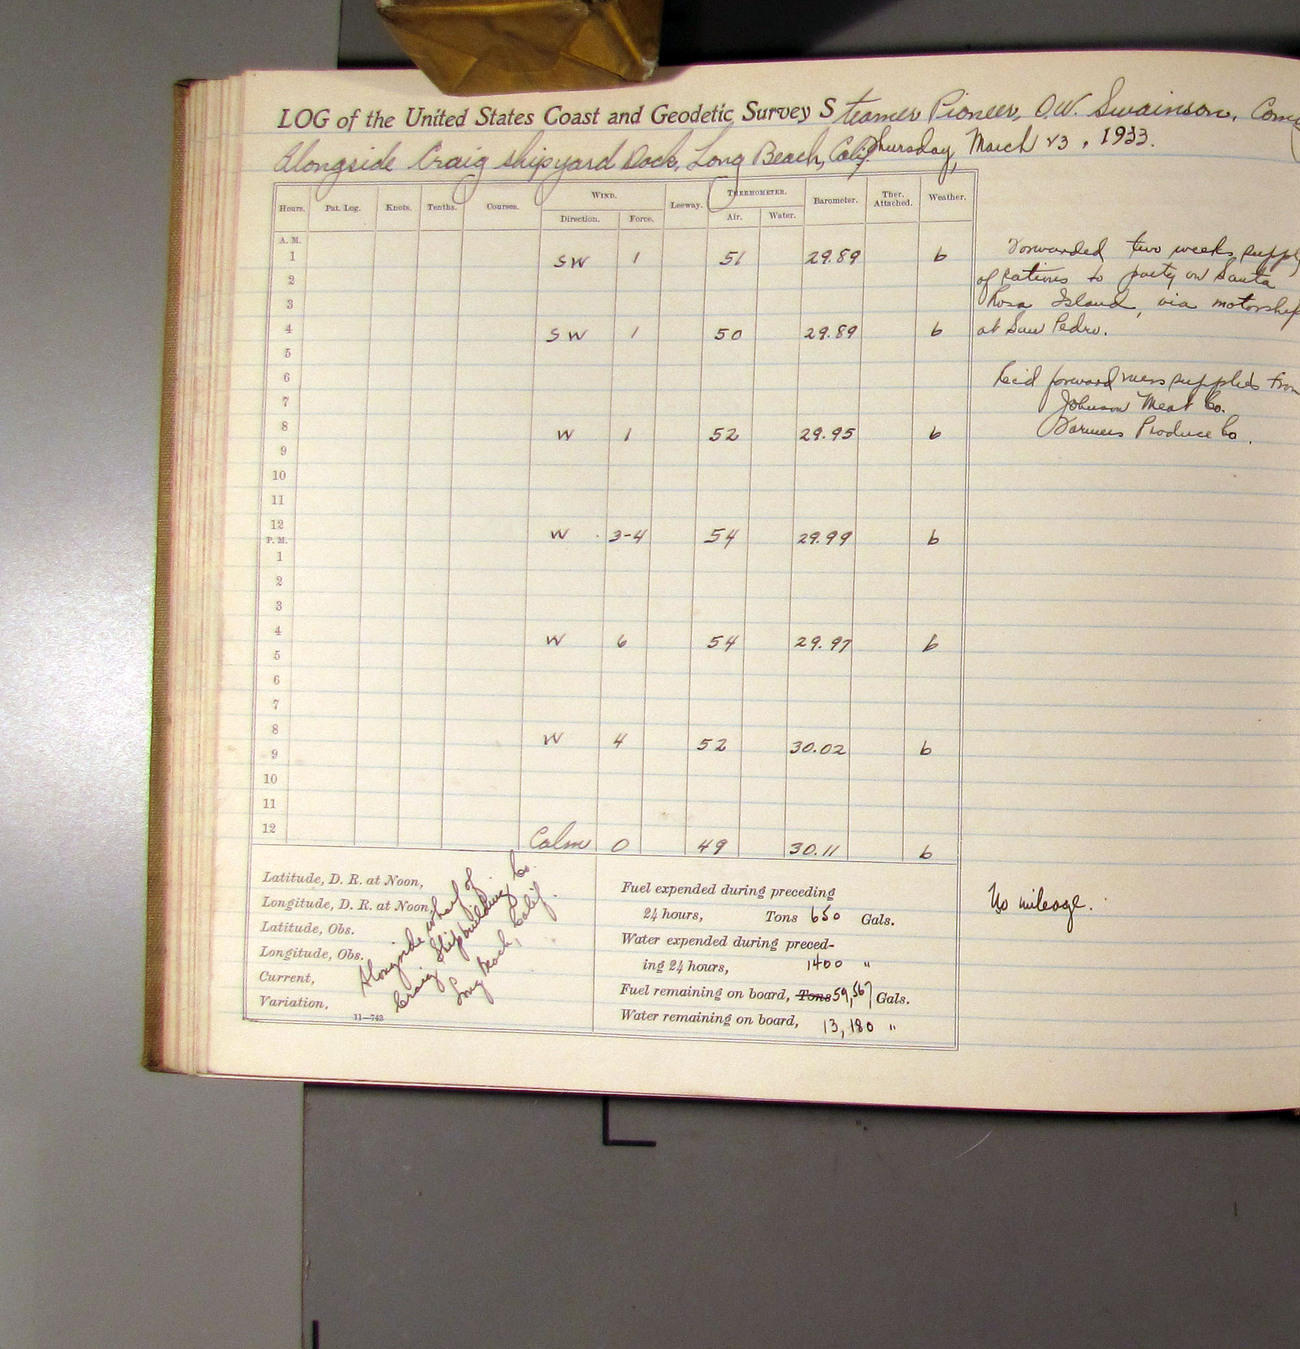 LOG of the United States Coast and Geodetic Survey Steamer Pioneer, O.W. Swainson, Com
Alongside Craig shipyard Dock, Long Beach, Calif. Thursday, March 23, 1933.
Hours. Pat. Log. Knots. Tenths. Courses. WIND. Leeway. THERMOMETER. Barometer. Ther. Attached. Weather.
Direction. Force. Air. Water.
A. M.
1 SW 1 51 29.89 b
2
3
4 SW 1 50 29.89 b
5
6
7
8 W 1 52 29.95 b
9
10
11
12 W 3-4 54 29.99 b
P. M.
1
2
3
4 W 6 54 29.97 b
5
6
7
8 W 4 52 30.02 b
9
10
11
12 Calm 0 49 30.11 b
Forwarded two weeks supply
of rations to party on Santa
Rosa Island, via motorship
at San Pedro.
Rec'd forward mess supplies from
Johnson Meat Co.
Farmers Produce Co.
No mileage.
Latitude, D. R. at Noon,
Longitude, D. R. at Noon,
Latitude, Obs.
Longitude, Obs.
Current,
Variation,
11—743
Alongside wharf of
Craig Shipbuilding Co.
Long Beach, Calif.
Fuel expended during preceding
24 hours, Tons 650 Gals.
Water expended during preced-
ing 24 hours, 1400 "
Fuel remaining on board, Tons 59,567 Gals.
Water remaining on board, 13,180 "